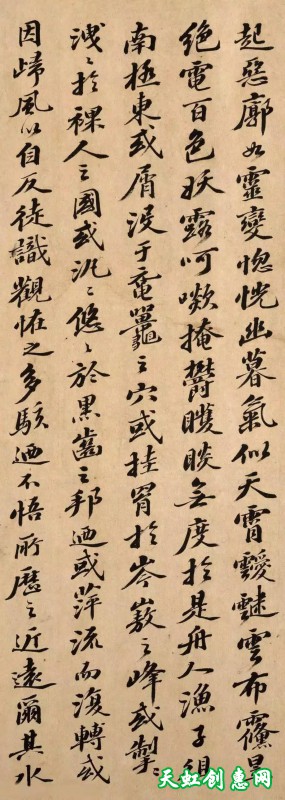 起惡廓如靈變惚恍幽暮氣似天霄靉靆雲布昱
絕電百色妖露呵㰤掩鬱矆睒無度於是舟人漁子徂
南極東或屑沒于黿鼉之穴或挂罥於岑嶅之峰或掣〻
洩〻於裸人之國或汎〻悠〻於黑齒之邦迺或萍流而浮轉或
因歸風以自反徒識觀怪之多駭迺不悟所歷之近遠爾其水
天虹创惠网